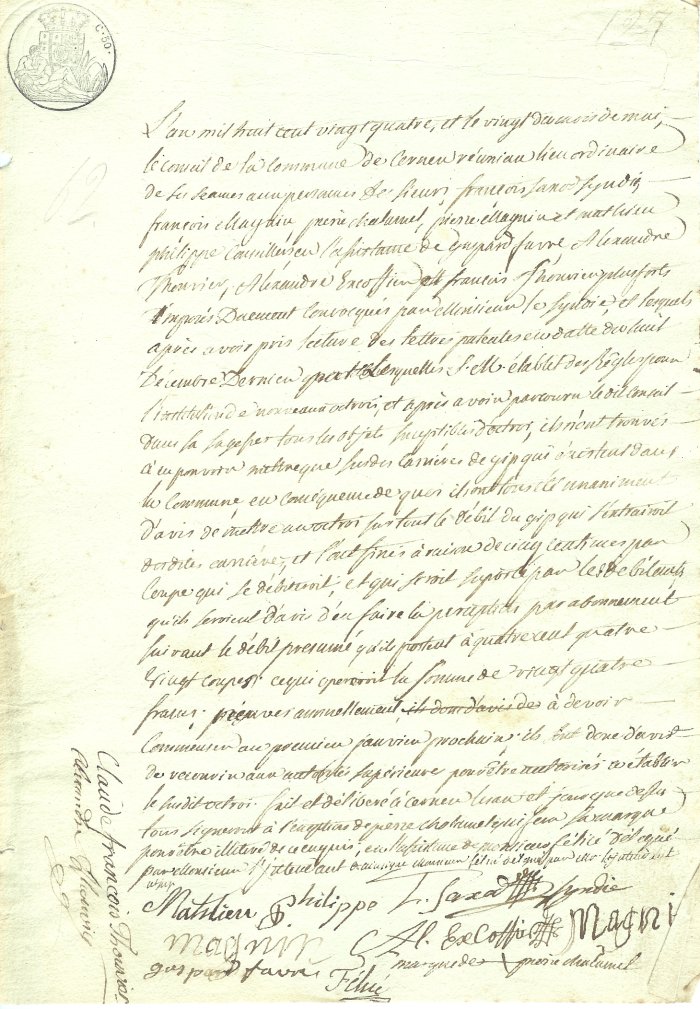 C. 50.
L'an mil huit cent vingt quatre, et le vingt du mois de mai,
le conseil de la Commune de Cerneu réuni au lieu ordinaire
de ses séances aux personnes de sieurs françois Saxod syndic
françois Magnin pierre chatumel, pierre Magnin et mathieu
philippe Conseillers en l'assistance de Gaspard favre, Alexandre
Thouvier, Alexandre Excoffier et françois Thouvier plus forts
imposés Duement Convocqués par Monsieur le syndic, et lesquels
après avoir pris lecture des lettres patentes en datte du huit
Décembre Dernier par Lesquelles S. M. établit des Règles pour
de nouveaux octrois, et après avoir parcouru le dit Conseil
Dans sa sagesse tous les objets susceptibles d'octroi, ils n'ont trouvés
à en pouvoir mettre que sur des carrières de gip qui existent dans
la Commune en conséquence de quoi ils ont tous été unaniment
D'avis de mettre un octroi sur tout le débit du gip qui s'entrairoit
desdites carrières, et l'ont fixés à raison de cinq centimes par
Coupe qui se débiteroit, et qui seroit suporté par les débitants
qu'ils seroient d'avis d'en faire la perception par abonnement
suivant le débit presumé qu'ils portent à quatre cent quatre
vingt coupes ce qui la somme de vingt quatre
francs annuellement, ils sont d'avis de à devoir
Commencer au premier janvier prochain; ils ont donc d'avis
de recourir aux autorités supérieures pour être autorisés à établir
le susdit octroi. fait et déliberé à cerneu l'an et jour que dessus
tous signeront à l'exception de pierre chatumel qui fera sa marque
pour être illitéré de ce enquis, en l'assistance de monsieur félicé délégué
par Monsieur l'intendant
Mathieu philippe f. Saxod syndic
Magnin Al. Excoffier Magnin
gaspard favre marque de pierre chatumel
Félicé
Claude françois Thouvier
Alexandre Thouvier